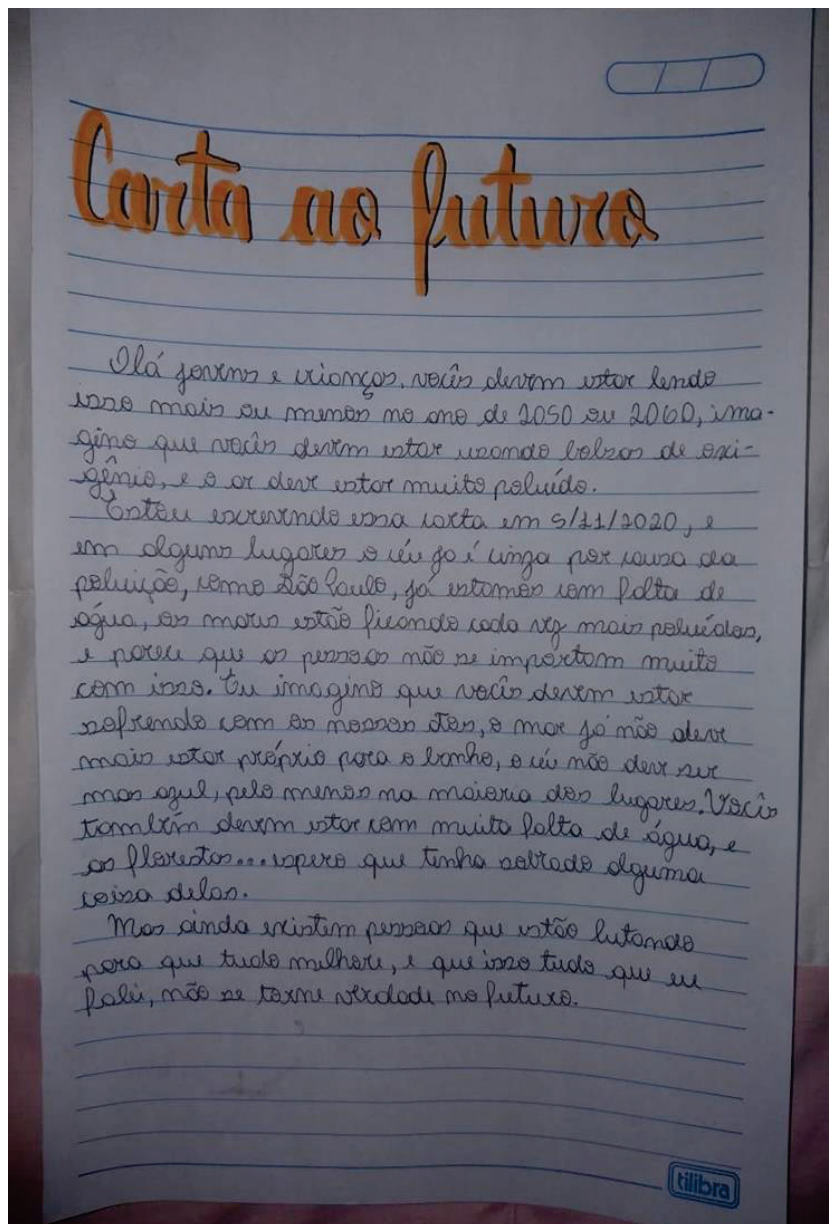 Carta ao futuro
Olá jovens e crianças, vocês devem estar lendo
isso mais ou menos no ano de 2050 ou 2060, ima-
gino que vocês devem estar usando bolsas de oxi-
gênio, e o ar deve estar muito poluído.
Estou escrevendo essa carta em 5/11/2020, e
em alguns lugares o céu ja é cinza por causa da
poluição, como São Paulo, já estamos com falta de
água, os mares estão ficando cada vez mais poluídos,
e parece que as pessoas não se importam muito
com isso. Eu imagino que vocês devem estar
sofrendo com os nossos atos, o mar já não deve
mais estar próprio para o banho, o céu não deve ser
mas azul, pelo menos na maioria dos lugares. Vocês
também devem estar com muita falta de água, e
as florestas... espero que tenha sobrado alguma
coisa delas.
Mas ainda existem pessoas que estão lutando
para que tudo melhore, e que isso tudo que eu
falei, não se torne verdade no futuro.
tilibra